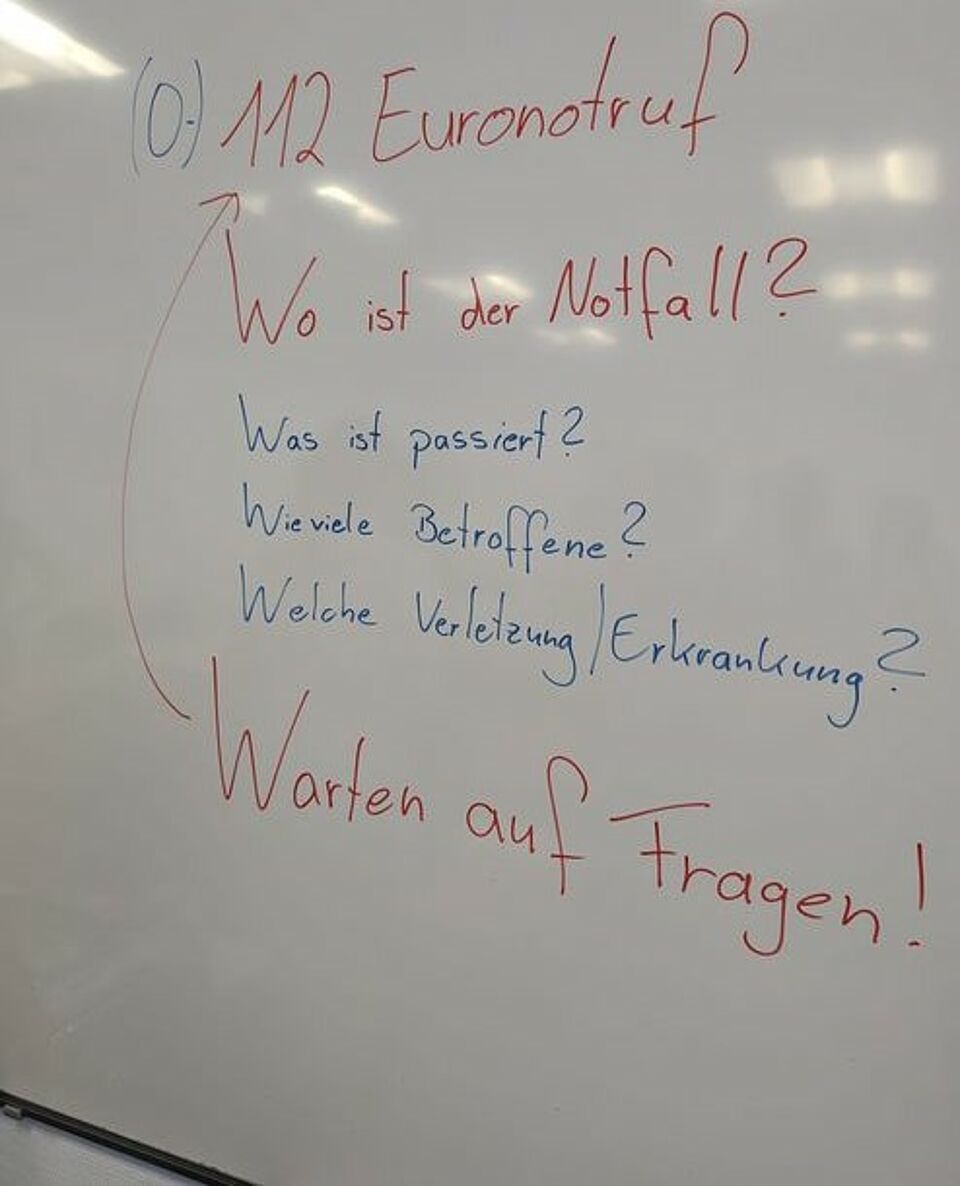 (0-) 112 Euronotruf
Wo ist der Notfall?
Was ist passiert?
Wieviele Betroffene?
Welche Verletzung/Erkrankung?
Warten auf Fragen!